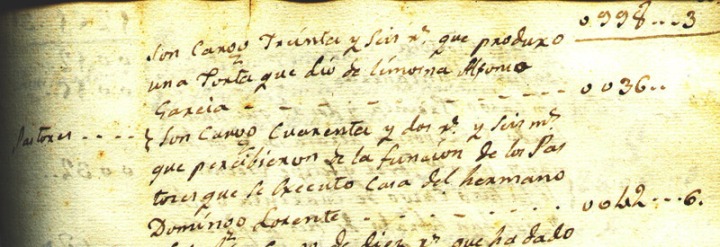 0998...3
Son Cargo Treinta y Seis r.^s que produxo
una Torta que dió de limosna Alfonso
Garcia - - - - - - - - - 0036..
Pastores - - - - Son Cargo Cuarenta y dos r.^s y Seis m.^s
que percibieron de la funcion de los Pas
tores que se Executo Casa del hermano
Domingo Lorente - - - - - - - - 0042...6.
de diez r.^s que ha dado